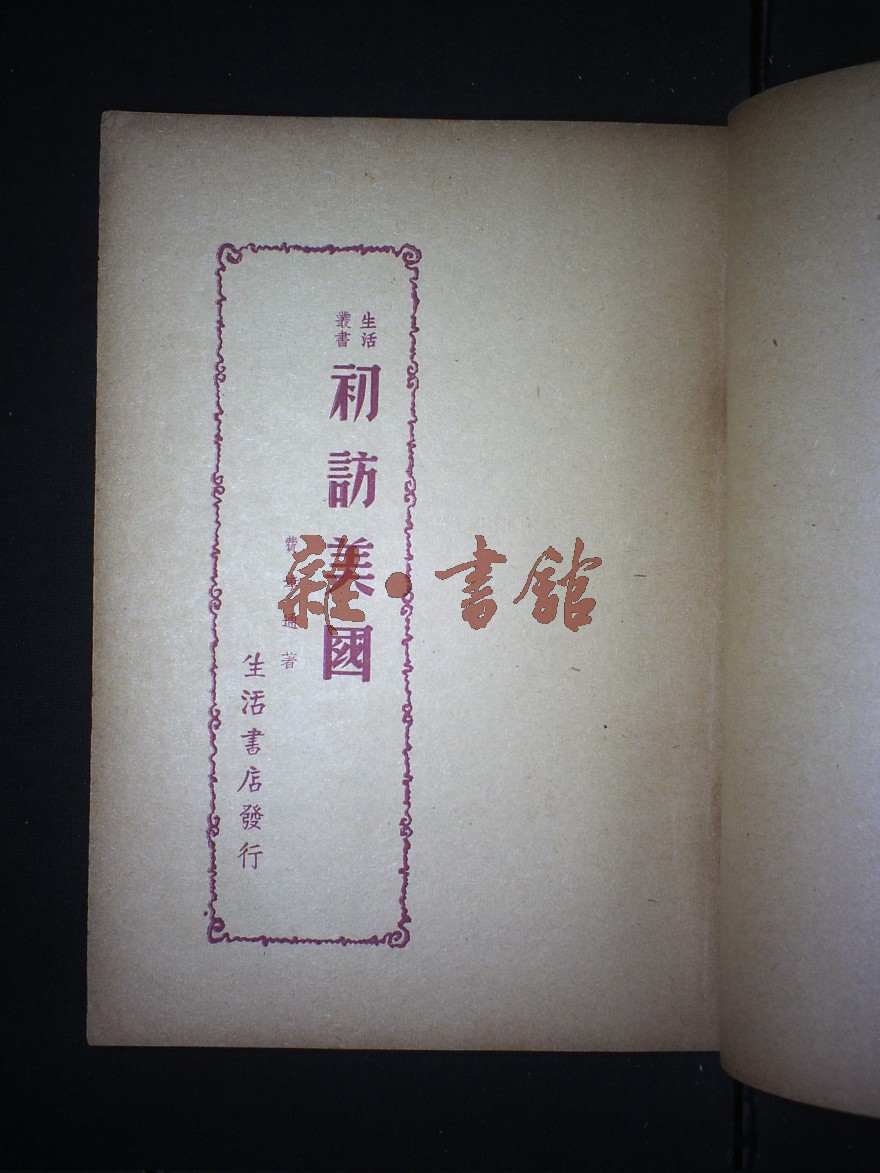 生活
叢書
初訪美國
費孝通 著
生活書店發行
雜·書館